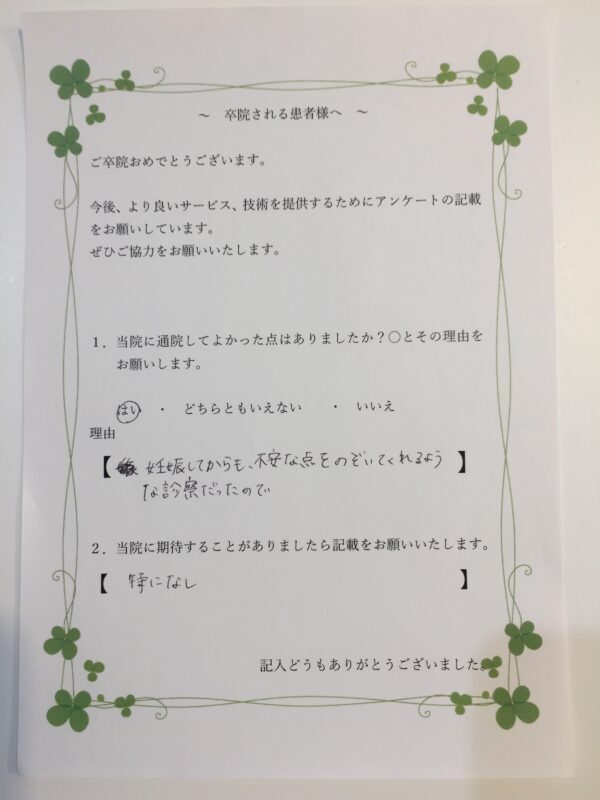 ～　卒院される患者様へ　～
ご卒院おめでとうございます。
今後、より良いサービス、技術を提供するためにアンケートの記載
をお願いしています。
ぜひご協力をお願いいたします。
１．当院に通院してよかった点はありましたか？○とその理由を
お願いします。
はい　・　どちらともいえない　・　いいえ
理由
【 妊娠してからも、不安な点をのぞいてくれるよう 】
な診察だったので
２．当院に期待することがありましたら記載をお願いいたします。
【 特になし 】
記入どうもありがとうございました。